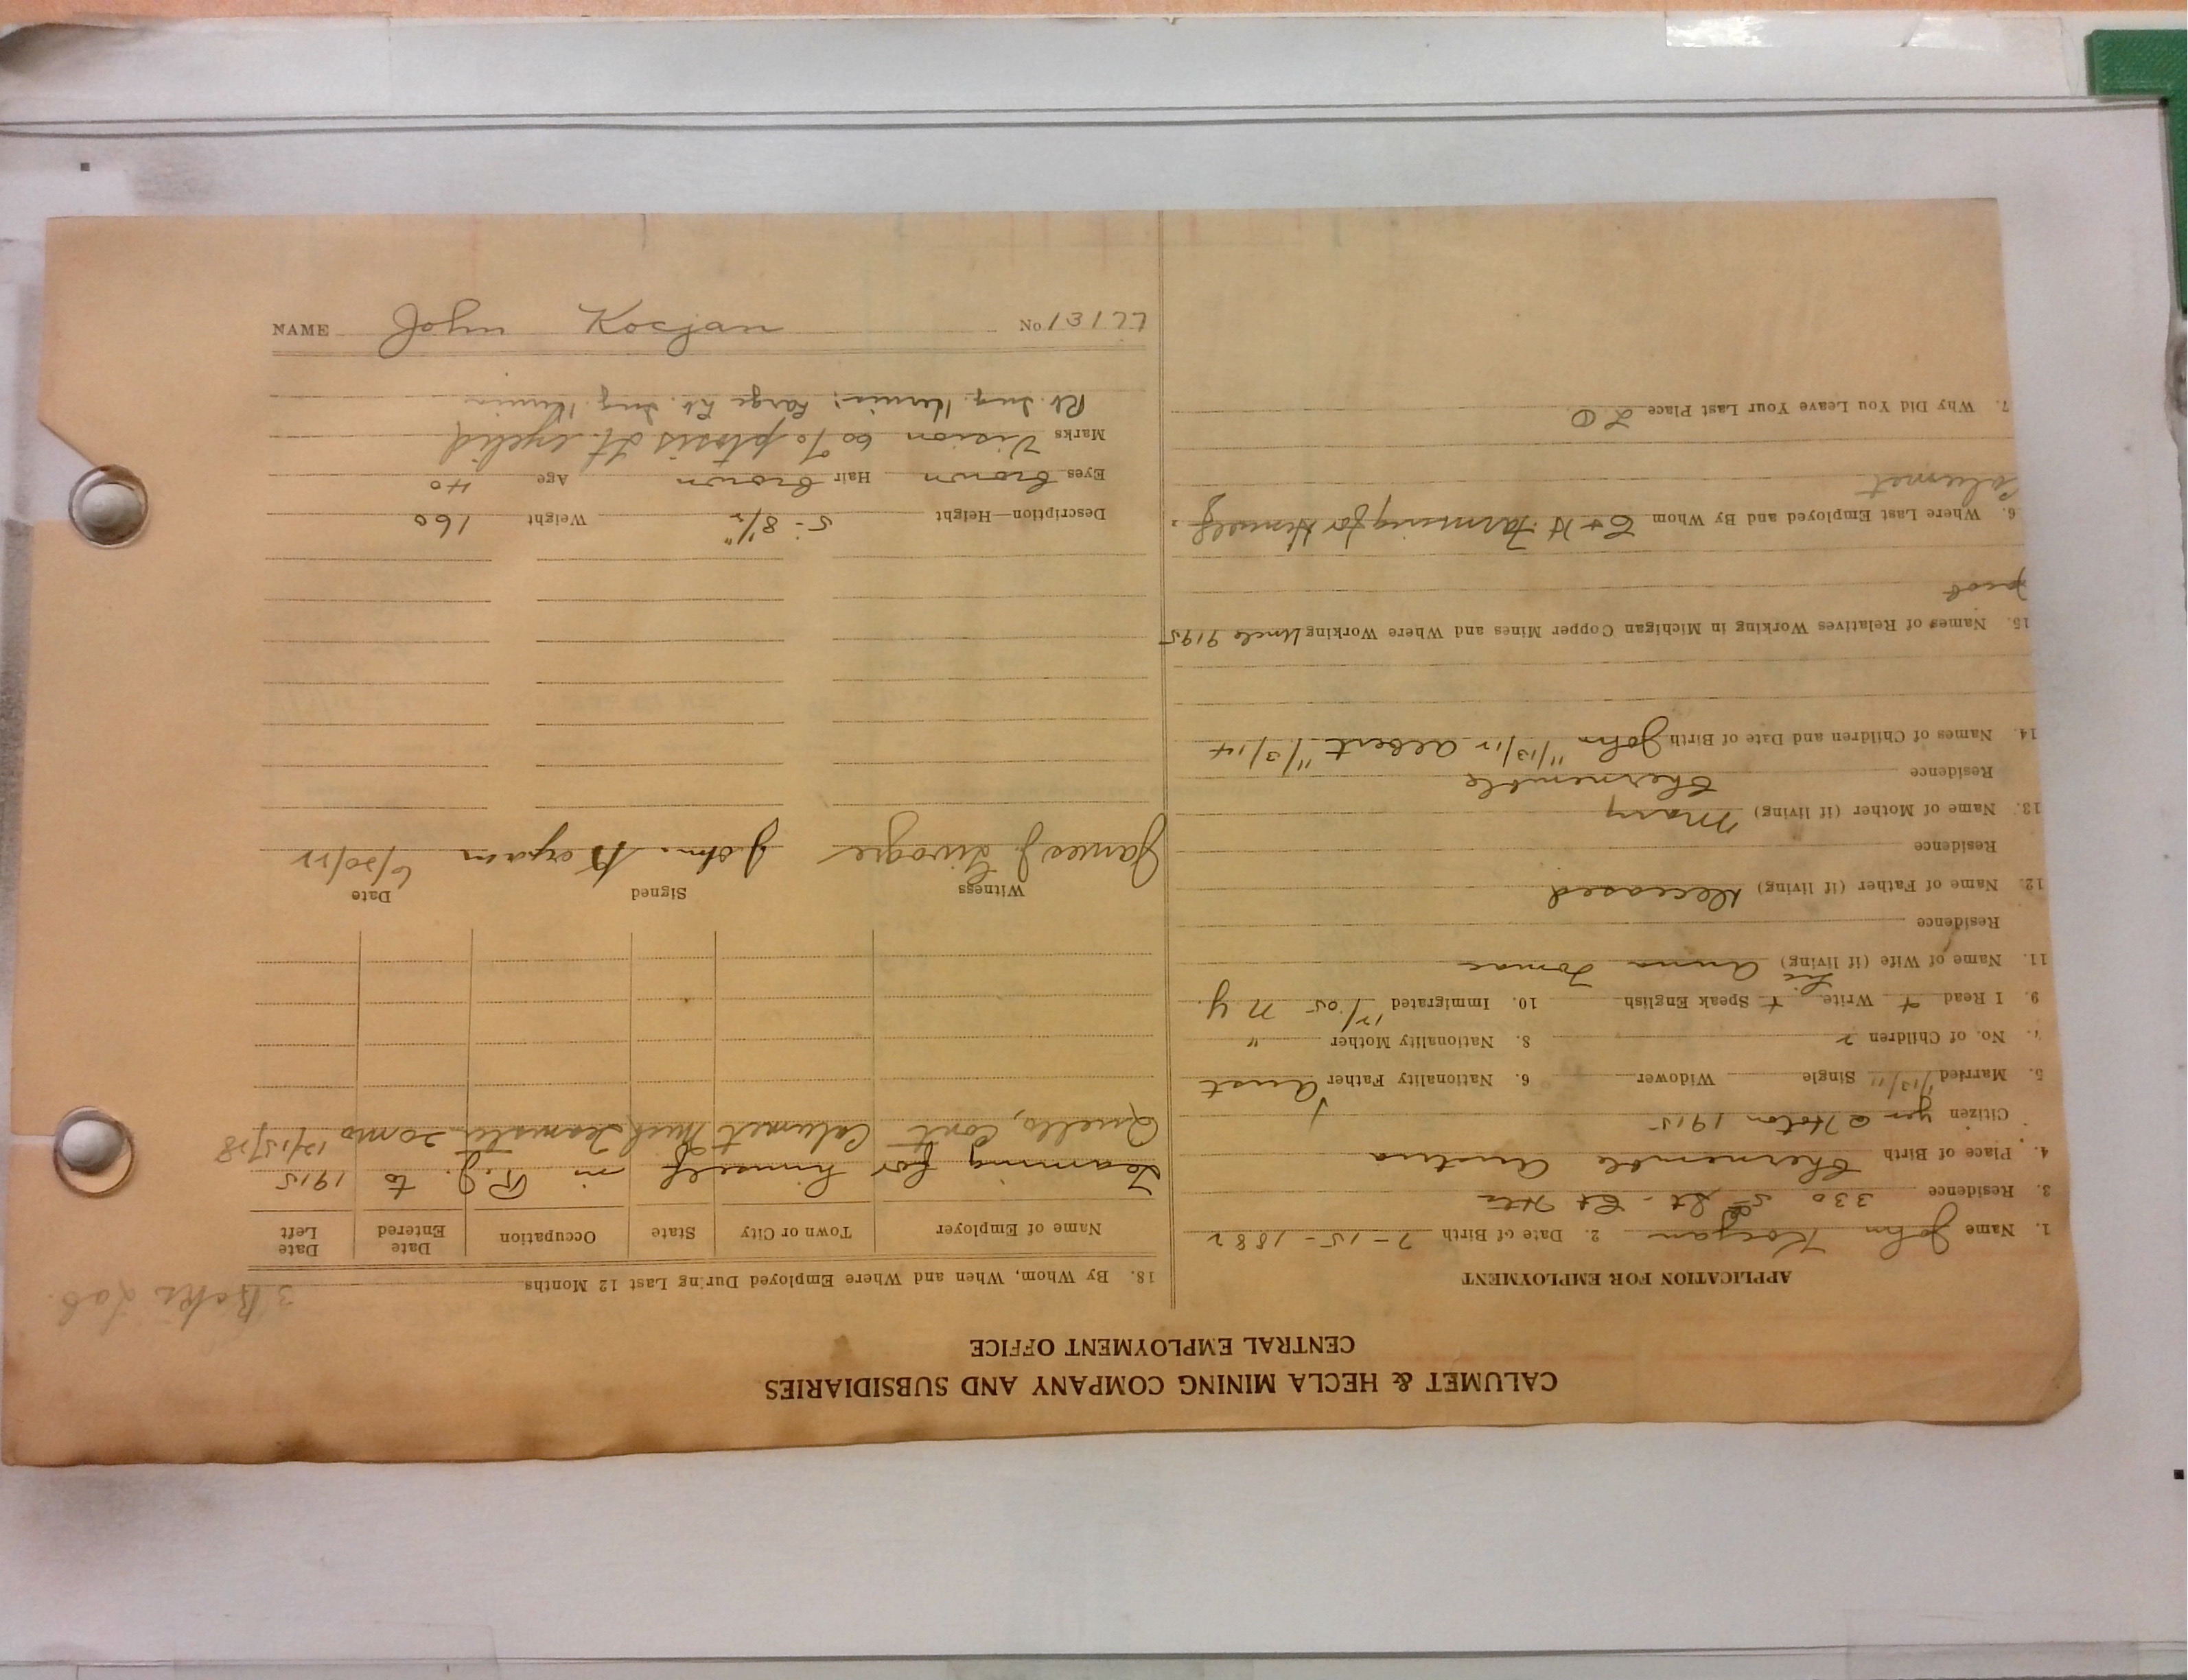 CALUMET & HECLA MINING COMPANY AND SUBSIDIARIES
CENTRAL EMPLOYMENT OFFICE
APPLICATION FOR EMPLOYMENT
1. Name John Kocjan 2. Date of Birth 7-15-1882
3. Residence 330 5th St.
4. Place of Birth Chernemble Austria
Citizen yes 1915
5. Married 11/13/11 Single Widower 6. Nationality Father Aust
No. of Children 2 8. Nationality Mother "
9. I Read + Write + Speak English Lit 10. Immigrated 12/05 N Y.
11. Name of Wife (if living) Anna Tomac
Residence
12. Name of Father (if living) Deceased
Residence
13. Name of Mother (if living) Mary
Residence Chernemble
14. Names of Children and Date of Birth John 11/13/12 Albert 11/3/14
15. Names of Relatives Working in Michigan Copper Mines and Where Working Uncle 9195
Jacob
6. Where Last Employed and By Whom C & H Farming for Himself.
Calumet
7. Why Did You Leave Your Last Place L O
3 Lab.
18. By Whom, When and Where Employed During Last 12 Months
Name of Employer Town or City State Occupation Date Entered Date Left
Farming for himself in to 1915
Cont Calumet Mich Teamster 20 mo 12/15/28
Witness Signed Date
James J. John Kocjan 6/20/22
Description—Height 5-8 1/2" Weight 160
Eyes brown Hair brown Age 40
Marks Vision 60% ptosis Lt. eyelid
Rt. Ing. Hernia; Large Lt. Ing. Hernia
NAME John Kocjan No 13177